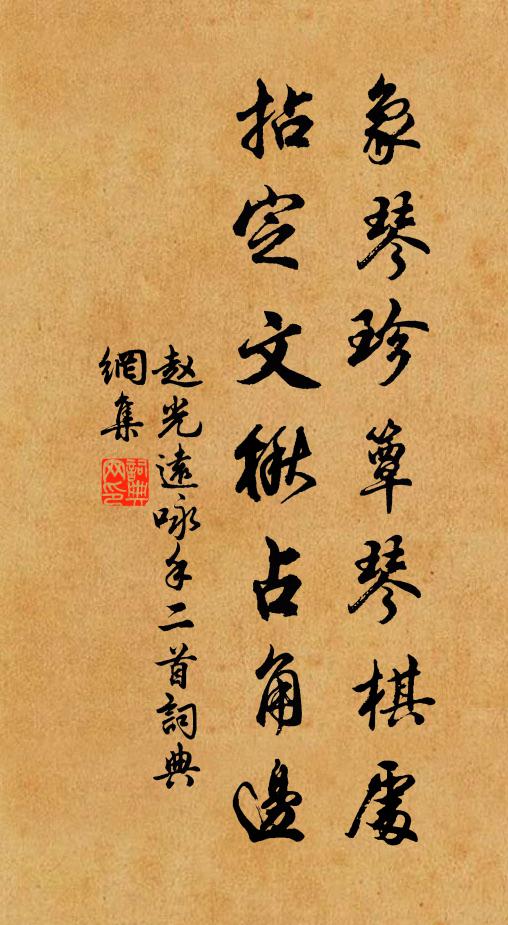 象琴珍簟琴棋處
拈定文楸占角邊
趙光遠咏手二首詞典
網集
詞典網印